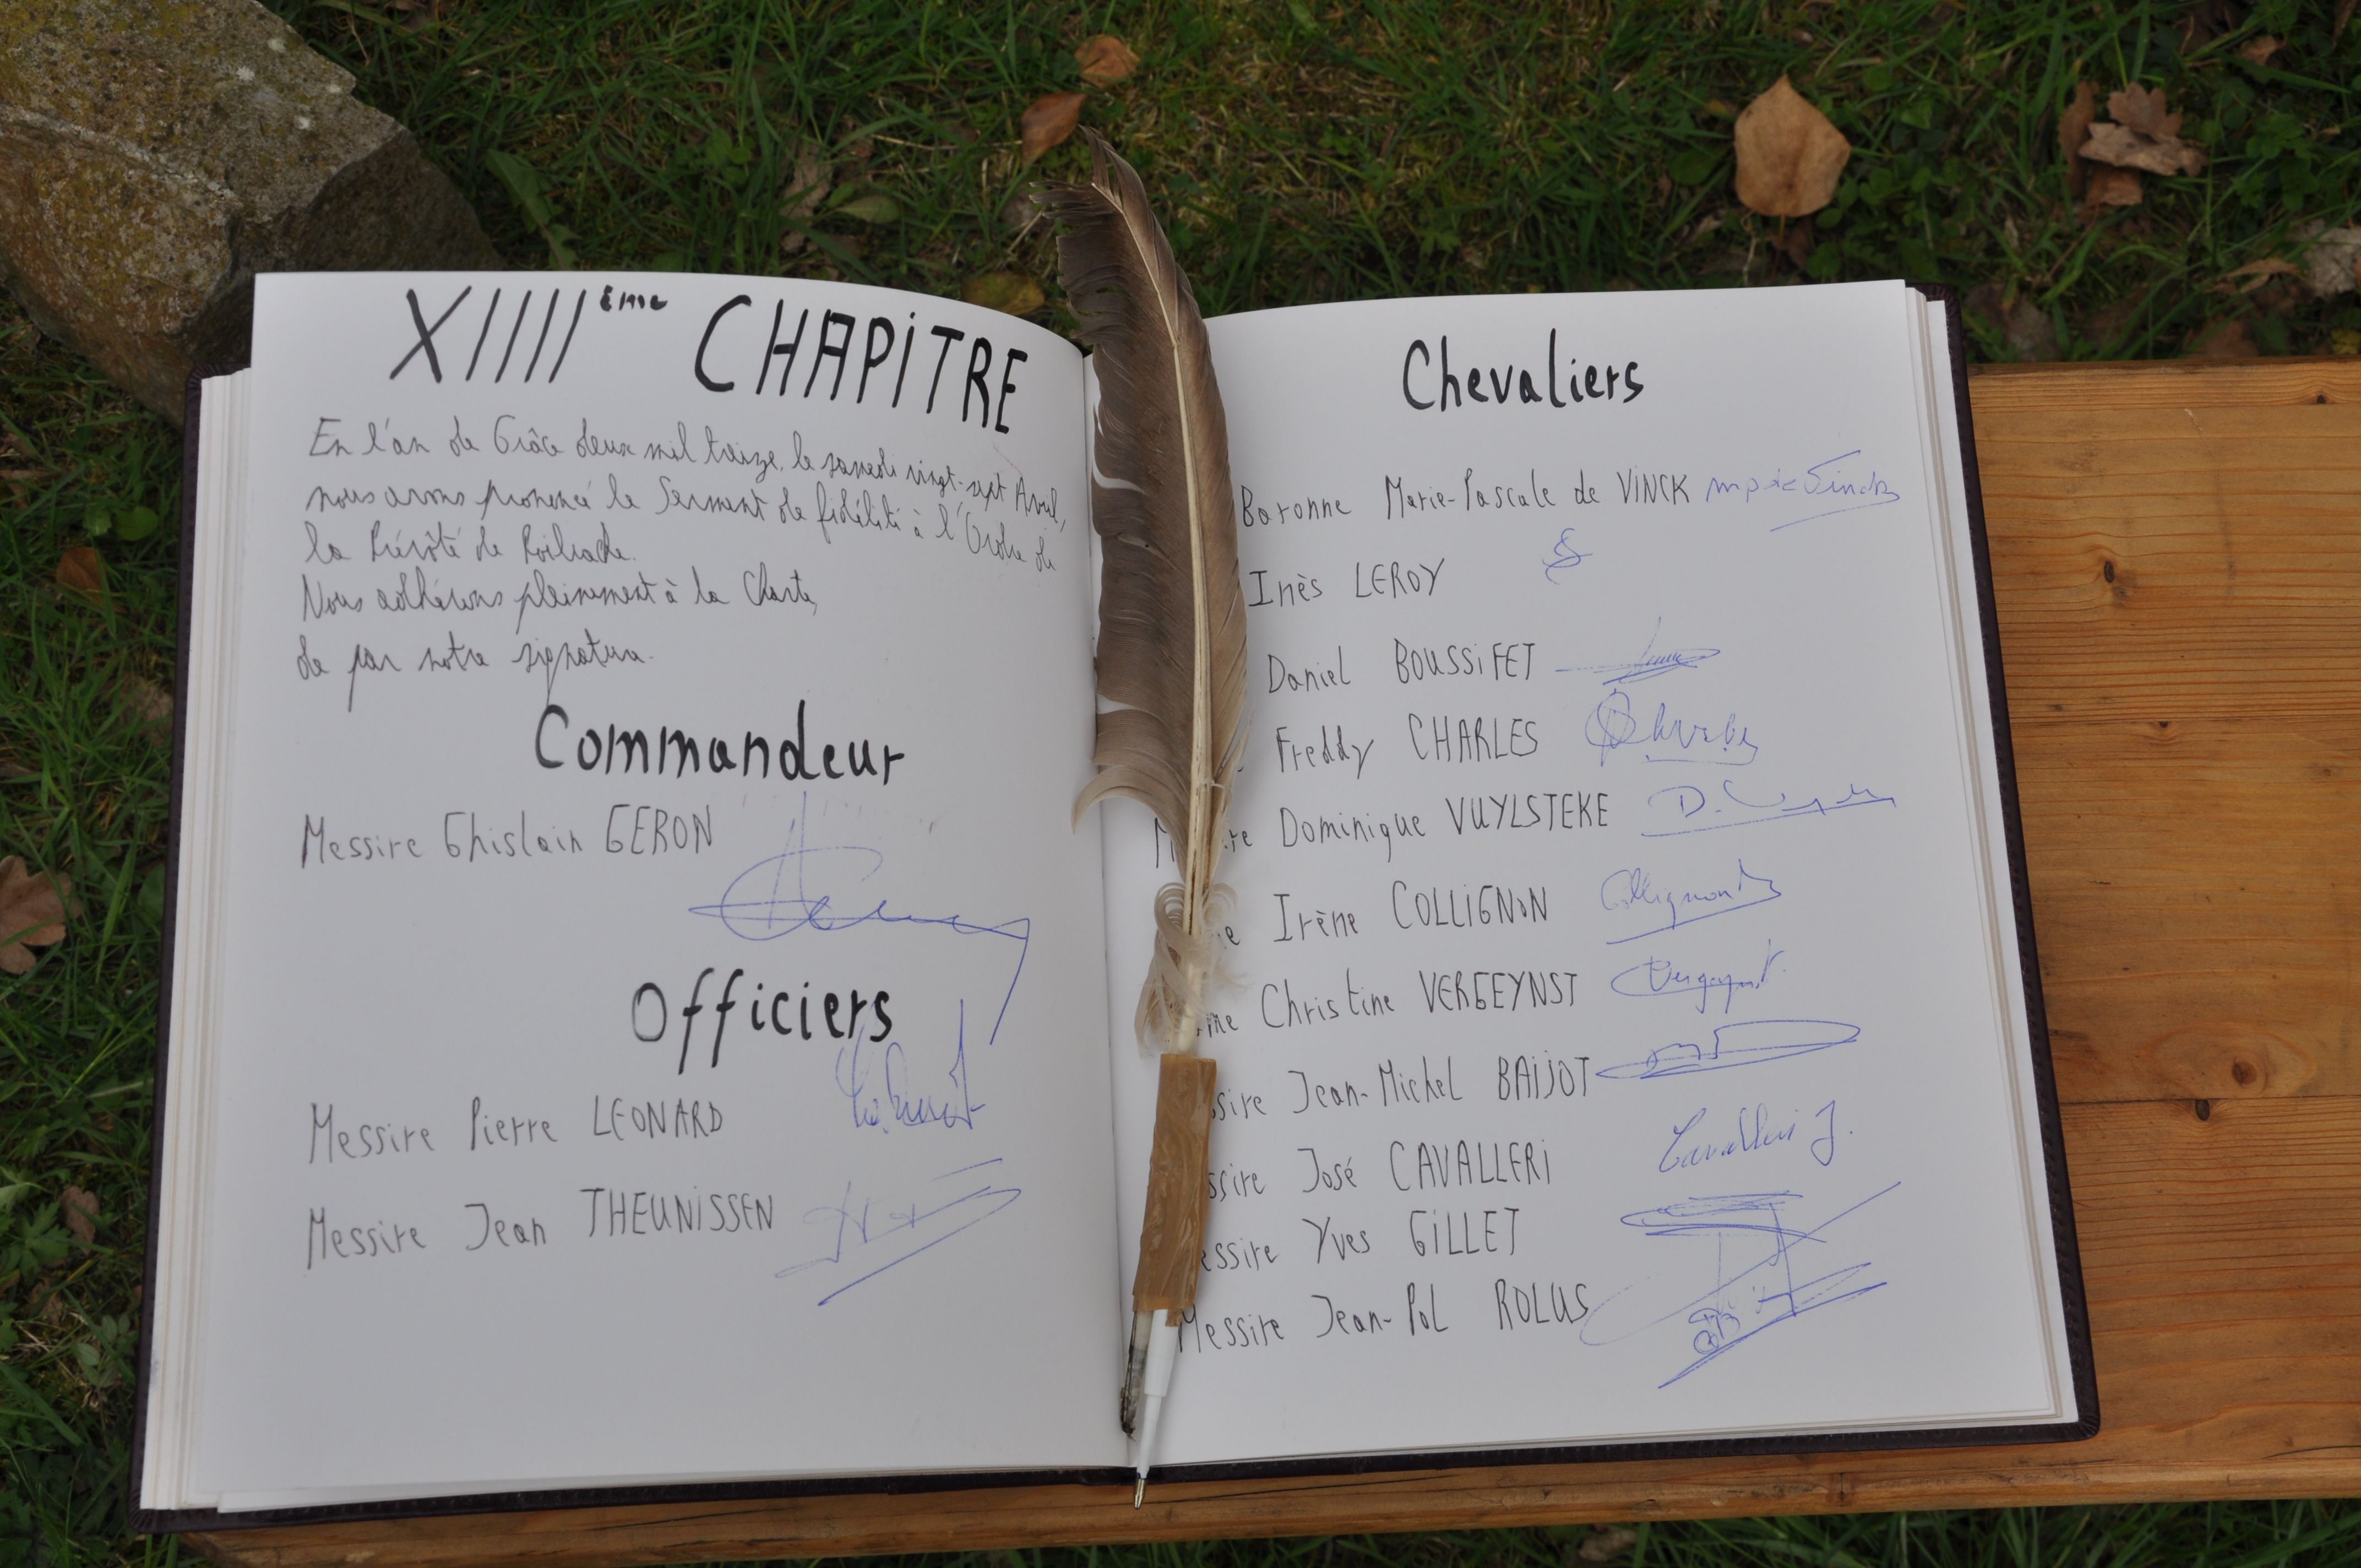 XIIIIème CHAPITRE
En l'an de Grâce deux mil treize, le samedi vingt-sept Avril,
nous avons prononcé le Serment de fidélité à l'Ordre de
la Prévôté de Poilvache.
Nous adhérons pleinement à la Charte,
de par notre signature.
Commandeur
Messire Ghislain GERON
Officiers
Messire Pierre LEONARD
Messire Jean THEUNISSEN
Chevaliers
Baronne Marie-Pascale de VINCK
Inès LEROY
Daniel BOUSSIFET
Freddy CHARLES
Dominique VUYLSTEKE D.
Irène COLLIGNON Collignon
Christine VERGEYNST Vergeynst
Jean-Michel BAIJOT
José CAVALLERI Cavalleri J.
Yves GILLET
Messire Jean-Pol ROLUS